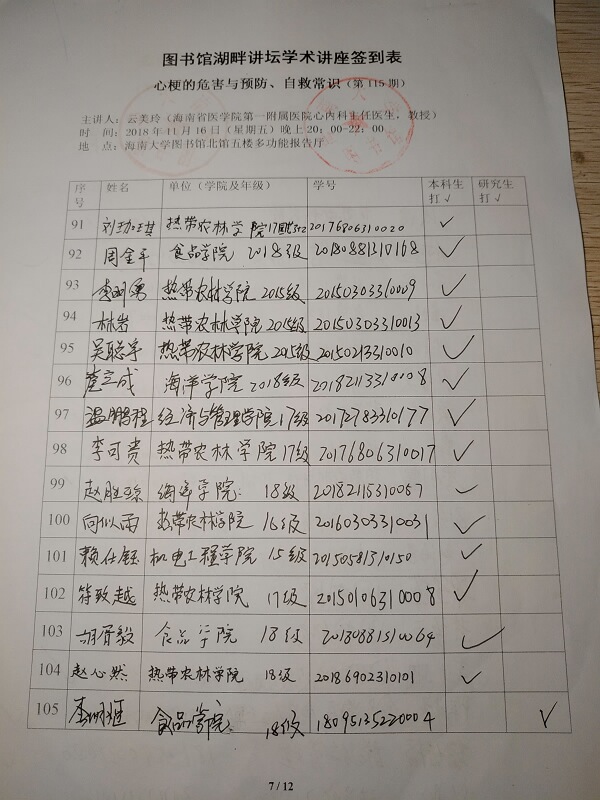 图书馆湖畔讲坛学术讲座签到表
心梗的危害与预防、自救常识（第115期）
主讲人：云美玲（海南省医学院第一附属医院心内科主任医生，教授）
时 间：2018年11月16日（星期五）晚上20：00-22：00
地 点：海南大学图书馆北馆五楼多功能报告厅
序号 姓名 单位（学院及年级） 学号 本科生打√ 研究生打√
91 热带农林学院17 20176806310020 √
92 周金平 食品学院 2018级 20180881310168 √
93 李明勇 热带农林学院 2015级 20150303310009 √
94 林岩 热带农林学院 2015级 20150303310013 √
95 吴聪宇 热带农林学院 2015级 20150213310010 √
96 海洋学院 2018级 20182113310008 √
97 温鹏程 经济与管理学院17级 20172783310177 √
98 李可贵 热带农林学院17级 20176806310017 √
99 赵胜琼 海洋学院 18级 20182115310057 √
100 向似雨 热带农林学院 16级 20160303310031 √
101 赖仕钰 机电工程学院 15级 20150581310150 √
102 符致越 热带农林学院 17级 20150106310008 √
103 食品学院 18级 √
104 赵心然 热带农林学院 18级 20186902310101 √
105 食品学院 18级 18095135220004 √
7 / 12